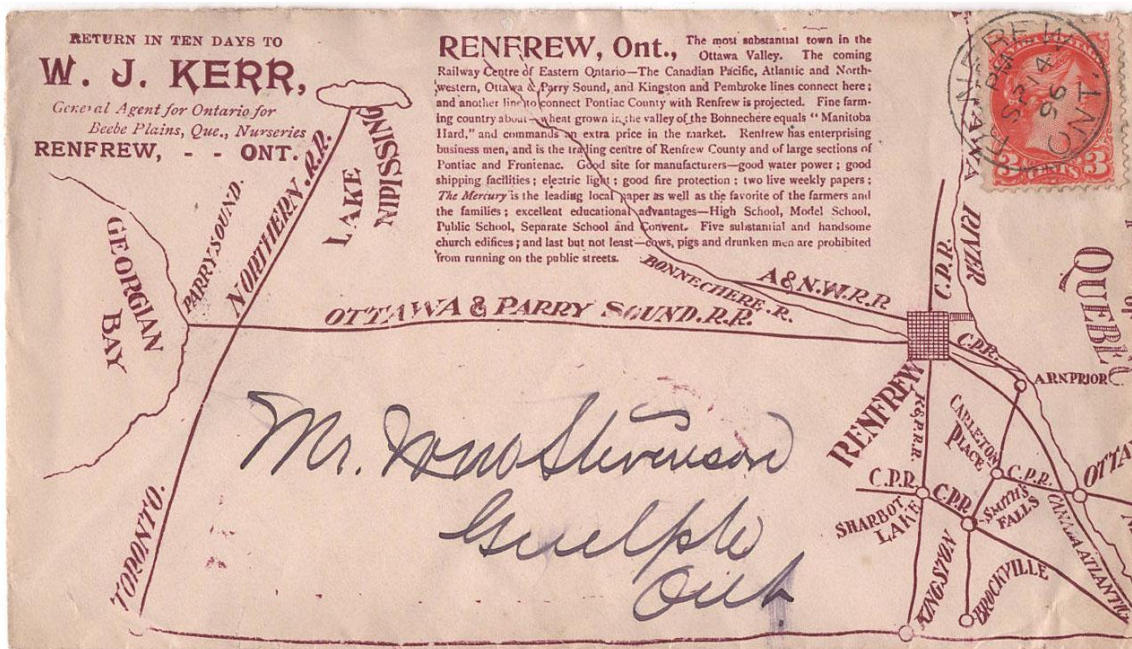 RETURN IN TEN DAYS TO
W. J. KERR,
General Agent for Ontario for
Beebe Plains, Que., Nurseries
RENFREW, - - ONT.
RENFREW, Ont., The most substantial town in the
Ottawa Valley. The coming
Railway Centre of Eastern Ontario—The Canadian Pacific, Atlantic and North-
western, Ottawa & Parry Sound, and Kingston and Pembroke lines connect here;
and another line to connect Pontiac County with Renfrew is projected. Fine farm-
ing country about—wheat grown in the valley of the Bonnechere equals "Manitoba
Hard," and commands an extra price in the market. Renfrew has enterprising
business men, and is the trading centre of Renfrew County and of large sections of
Pontiac and Frontenac. Good site for manufacturers—good water power; good
shipping facilities; electric light; good fire protection; two live weekly papers;
The Mercury is the leading local paper as well as the favorite of the farmers and
the families; excellent educational advantages—High School, Model School,
Public School, Separate School and Convent. Five substantial and handsome
church edifices; and last but not least—cows, pigs and drunken men are prohibited
from running on the public streets.
RENFREW ONT.
PM
SP 14
96
3 CENTS 3
LAKE NIPISSING
NORTHERN.R.R.
PARRY SOUND.
GEORGIAN BAY
OTTAWA & PARRY SOUND.R.R.
BONNECHERE.R.
A&N.W.R.R
C.P.R.
OTTAWA RIVER
QUEBEC
C.P.R.
ARNPRIOR
RENFREW
K&P.R.R.
CARLETON PLACE
C.P.R.
C.P.R.
C.P.R.
OTTAWA
SMITH'S FALLS
SHARBOT LAKE
CANADA ATLANTIC
KINGSTON
BROCKVILLE
TORONTO.
Mr. Wm Stevenson
Guelph
Ont